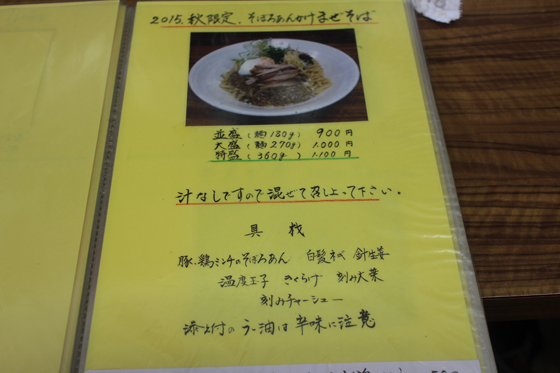 2015.秋限定.そぼろあんかけまぜそば
並盛(麺180g) 900円
大盛(麺270g) 1.000円
特盛(360g) 1.100円
汁なしですので混ぜて召し上って下さい。
具 材
豚、鶏ミンチのそぼろあん 白髪ネギ 針生姜
温度玉子 きくらげ 刻み大葉
刻みチャーシュー
添え付のラー油は辛味に注意